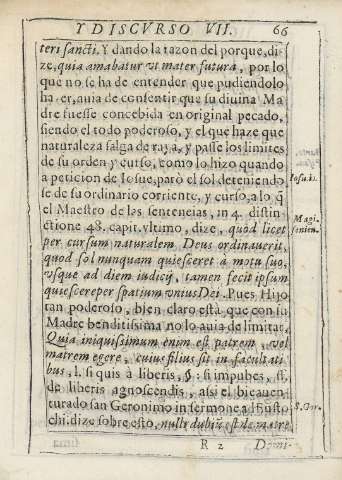 Y DISCVRSO VII. 66
teri sancti, Y dando la razon del porque, di
ze, quia amabatur vt mater futura, por lo
que no se ha de entender que pudiendolo
hazer, auia de consentir que su diuina Ma
dre fuesse concebida en original pecado,
siendo el todo poderoso, y el que haze que
naturaleza salga de raya, y passe los limites
de su orden y curso, como lo hizo quando
a peticion de Iosue, parò el sol deteniendo
se de su ordinario corriente, y curso, a lo q̃
el Maestro de las sentencias, in 4. distin
ctione 48. capit. vltimo, dize, quod licet
per cursum naturalem Deus ordinauerit,
quod sol nunquam quiesceret à motu suo,
vsque ad diem iudicij, tamen fecit ipsum
quiescere per spatium vnius Dei. Pues Hijo
tan poderoso, bien claro està que con su
Madre benditissima no lo auia de limitar,
Quia iniquissimum enim est patrem, vel
matrem egere, cuius filius sit in facultati
bus, l. si quis à liberis, §: si impubes, ff.
de liberis agnoscendis, assi el bieauen
turado san Geronimo in sermone ad Eusto
chi. dize sobre esto, nulli dubiũ est de matre
R 2 Domi-
Iosu.
Magi.
senten.
S. Ger.